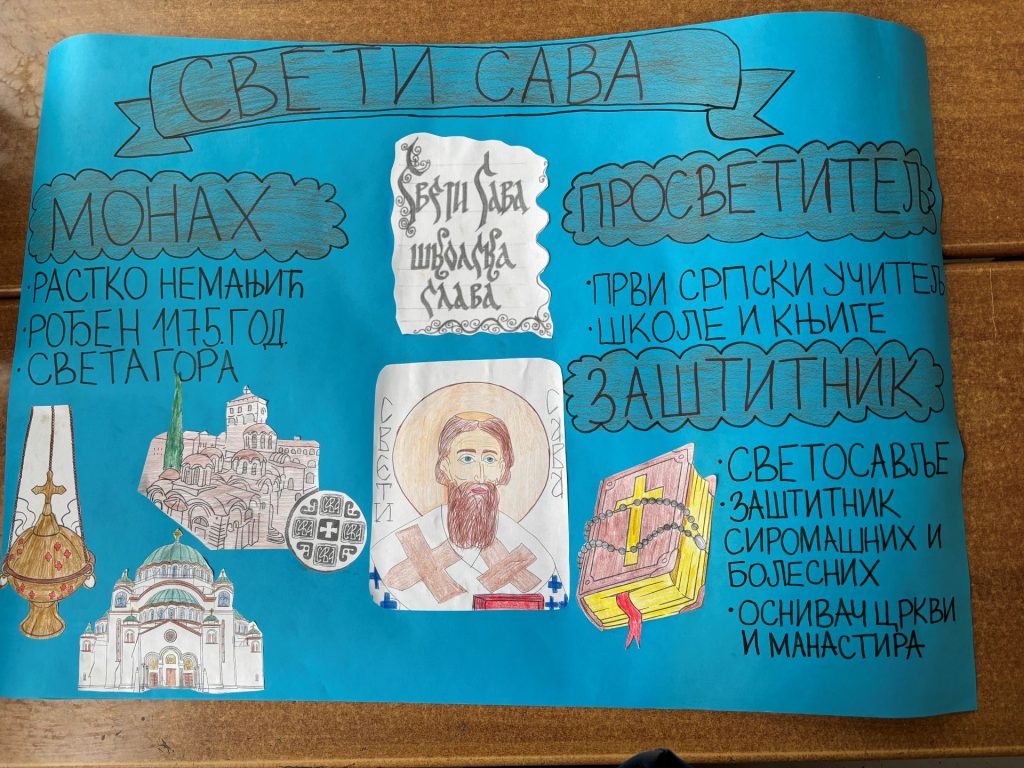 СВЕТИ САВА
МОНАХ
·РАСТКО НЕМАЊИЋ
·РОЂЕН 1175. ГОД.
·СВЕТА ГОРА
Свети Сава
школска
слава
СВЕТИ
САВА
ПРОСВЕТИТЕЉ
·ПРВИ СРПСКИ УЧИТЕЉ
·ШКОЛЕ И КЊИГЕ
ЗАШТИТНИК
·СВЕТОСАВЉЕ
·ЗАШТИТНИК
СИРОМАШНИХ И
БОЛЕСНИХ
·ОСНИВАЧ ЦРКВИ
И МАНАСТИРА